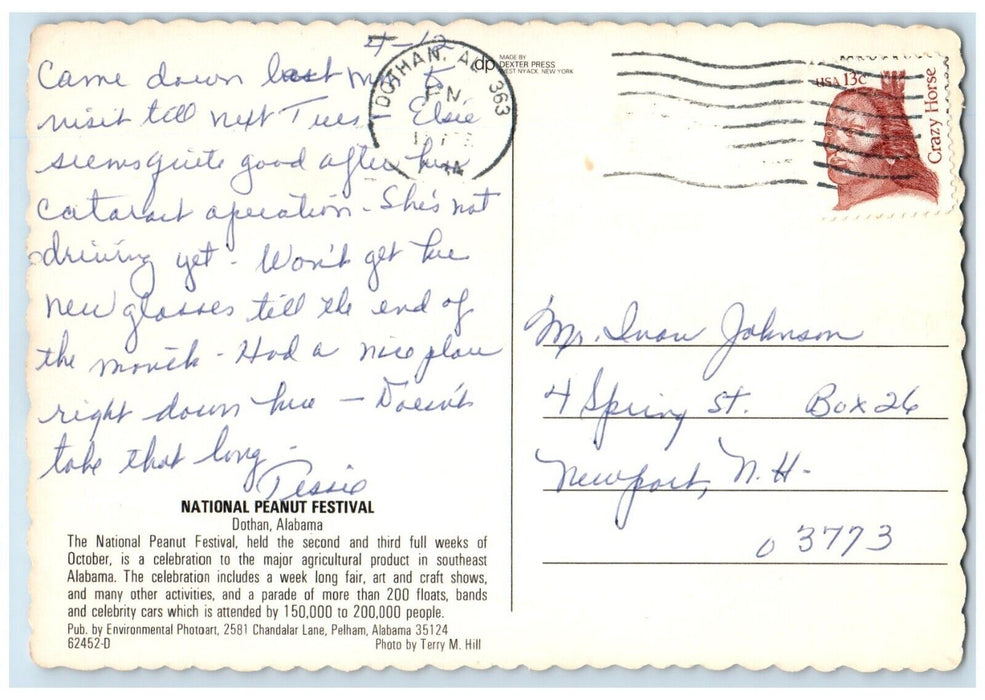 4-12
Came down last to
visit till next Tues. Elsie
seems quite good after her
cataract operation - She's not
driving yet - Won't get her
new glasses till the end of
the month - Had a nice plane
right down here - Doesn't
take that long -
Tessie
NATIONAL PEANUT FESTIVAL
Dothan, Alabama
The National Peanut Festival, held the second and third full weeks of
October, is a celebration to the major agricultural product in southeast
Alabama. The celebration includes a week long fair, art and craft shows,
and many other activities, and a parade of more than 200 floats, bands
and celebrity cars which is attended by 150,000 to 200,000 people.
Pub. by Environmental Photoart, 2581 Chandalar Lane, Pelham, Alabama 35124
62452-D Photo by Terry M. Hill
DOTHAN, AL 363
dp MADE BY
DEXTER PRESS
WEST NYACK, NEW YORK
USA 13c
Crazy Horse
Mr. Ivan Johnson
4 Spring St. Box 26
Newport, N.H-
03773